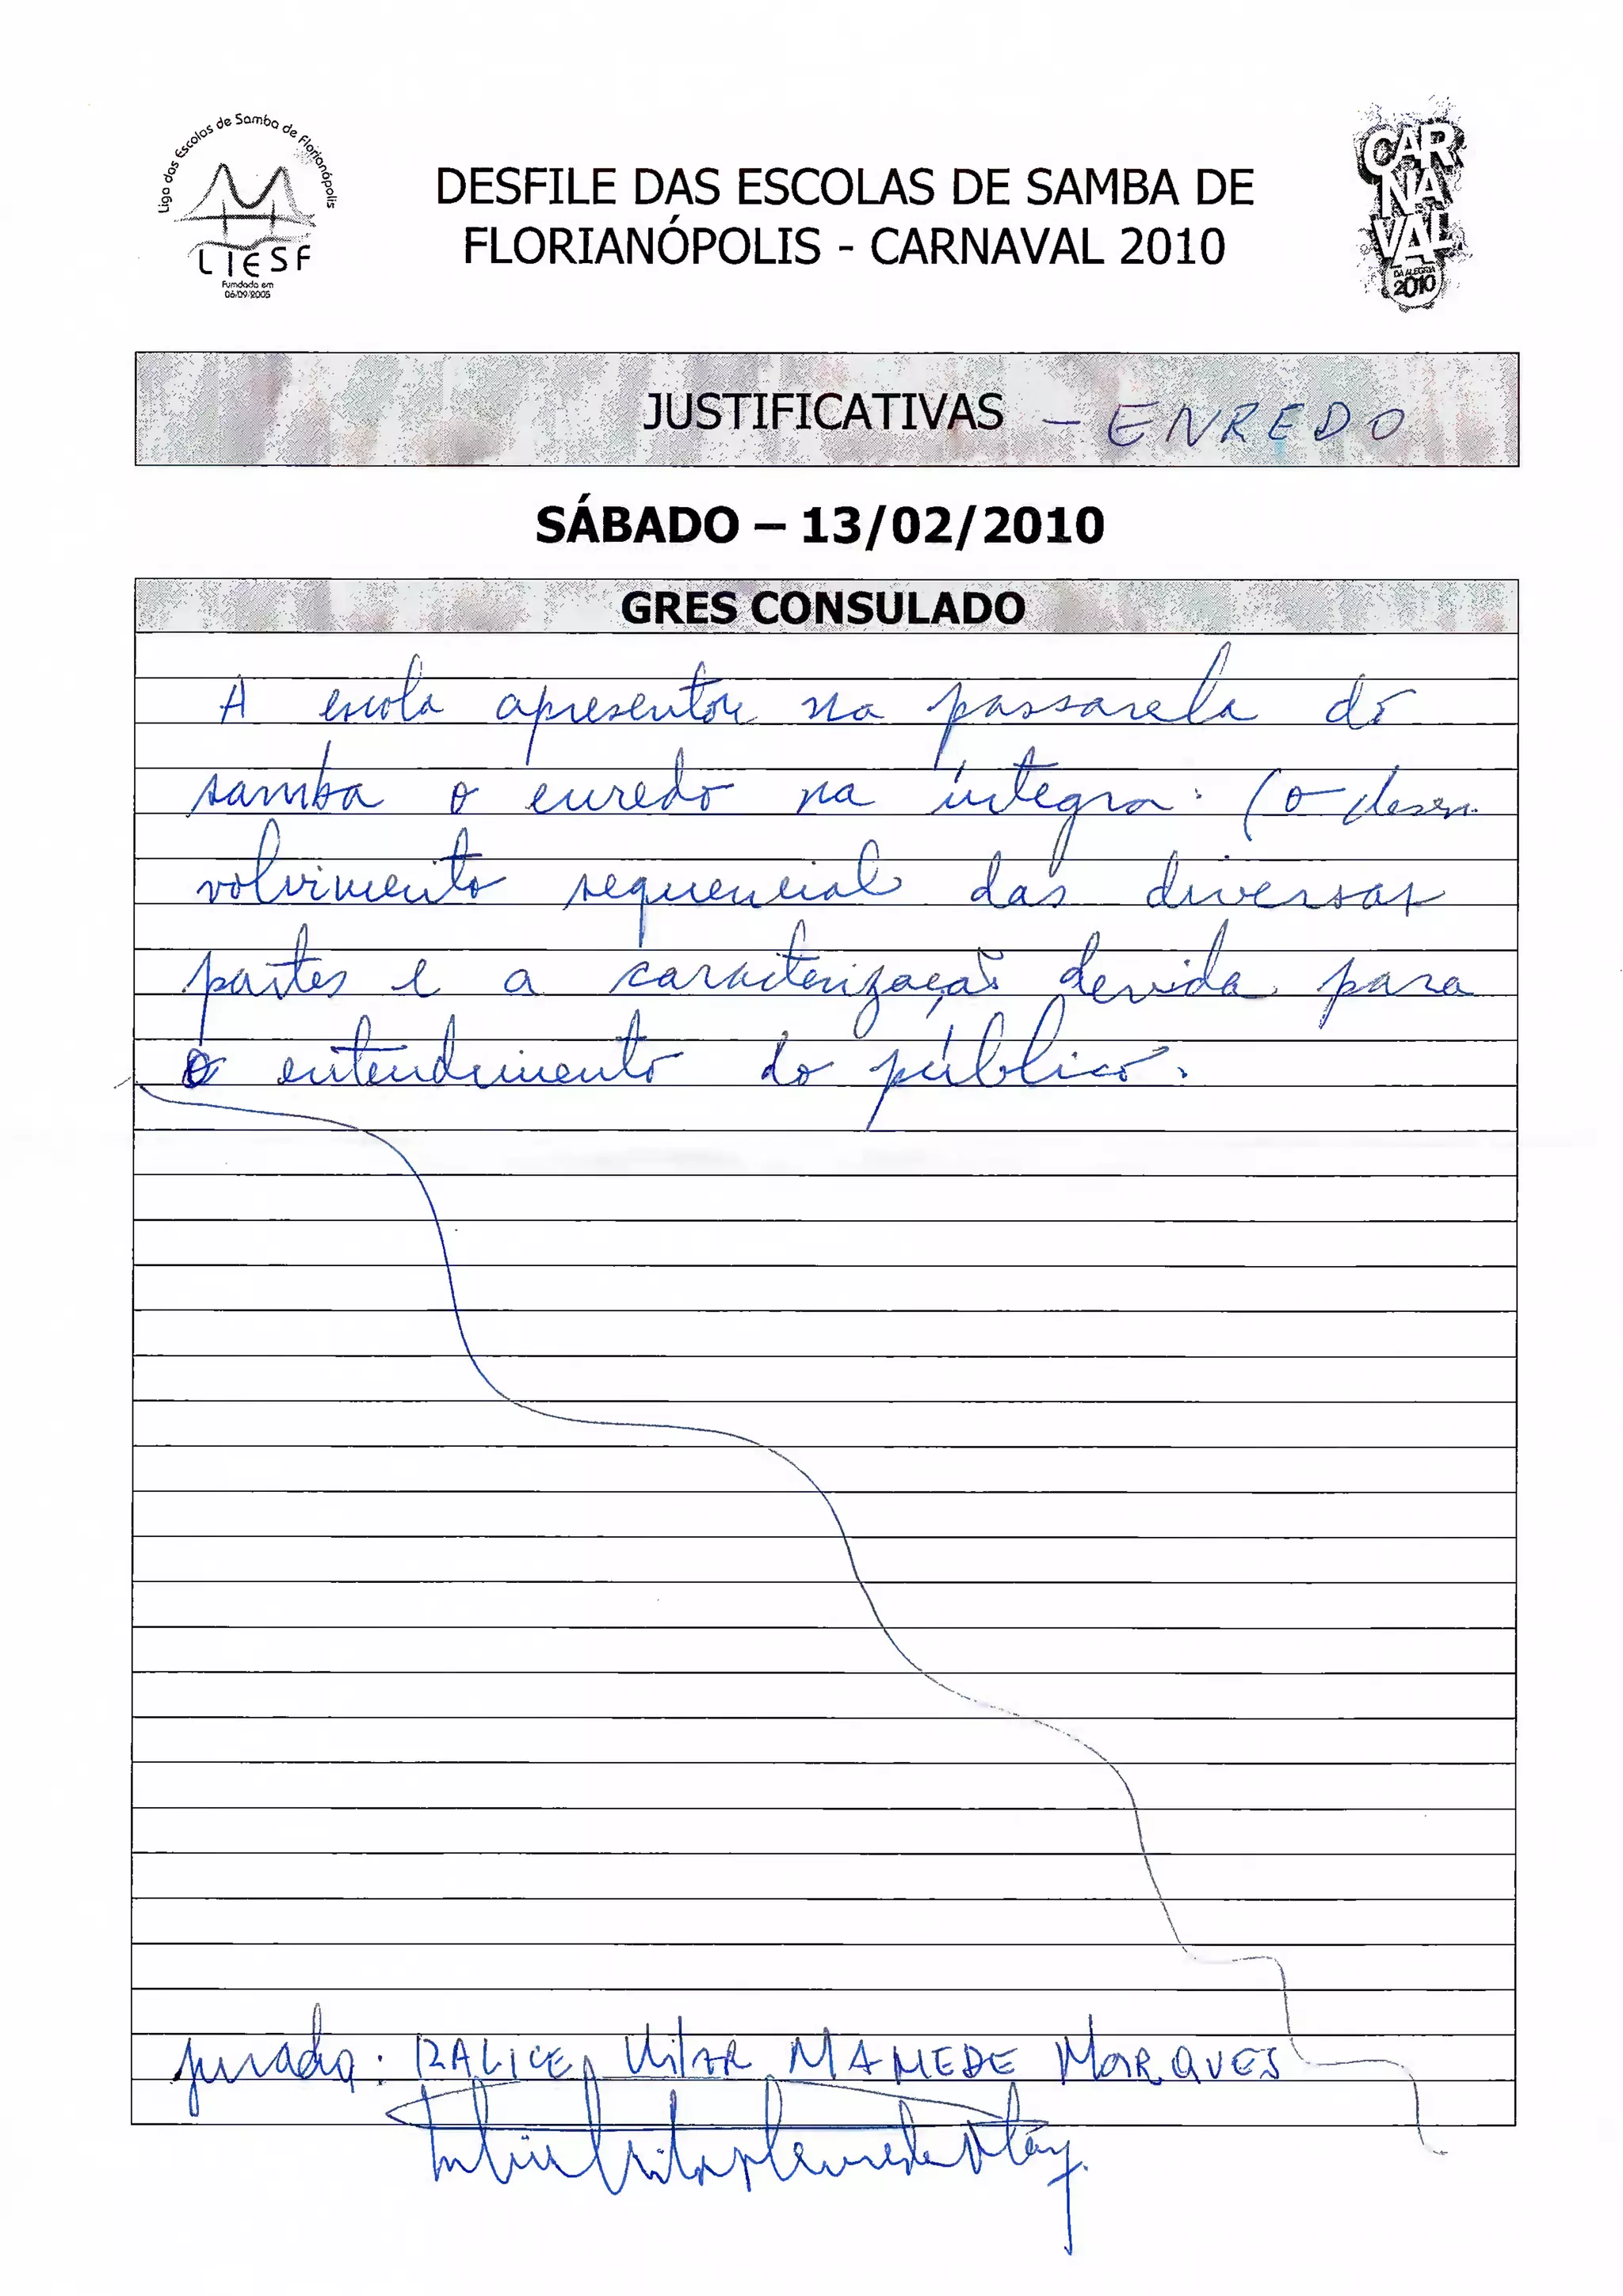 Liga das Escolas de Samba de Florianópolis
LIESF
Fundada em
06/09/2005
DESFILE DAS ESCOLAS DE SAMBA DE
FLORIANÓPOLIS - CARNAVAL 2010
CAR
NA
VAL
DA ALEGRIA
2010
JUSTIFICATIVAS - ENREDO
SÁBADO – 13/02/2010
GRES CONSULADO
A escola apresentou na passarela do
samba o enredo na íntegra. (o desen
volvimento sequencial das diversas
partes e a caracterização devida para
o entendimento do público.
jurada: IZALICE Vilar MAMEDE MARQUES